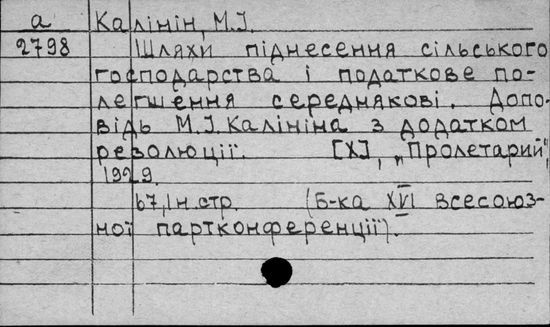 а Калінін, М.І.
2798 Шляхи піднесення сільського
господарства і податкове по-
легшення середнякові. Допо-
відь М.І. Калініна з додатком
резолюції. [Х], „Пролетарий",
1929.
67,1н.стр. (Б-ка XVI всесоюз-
ної партконференції).